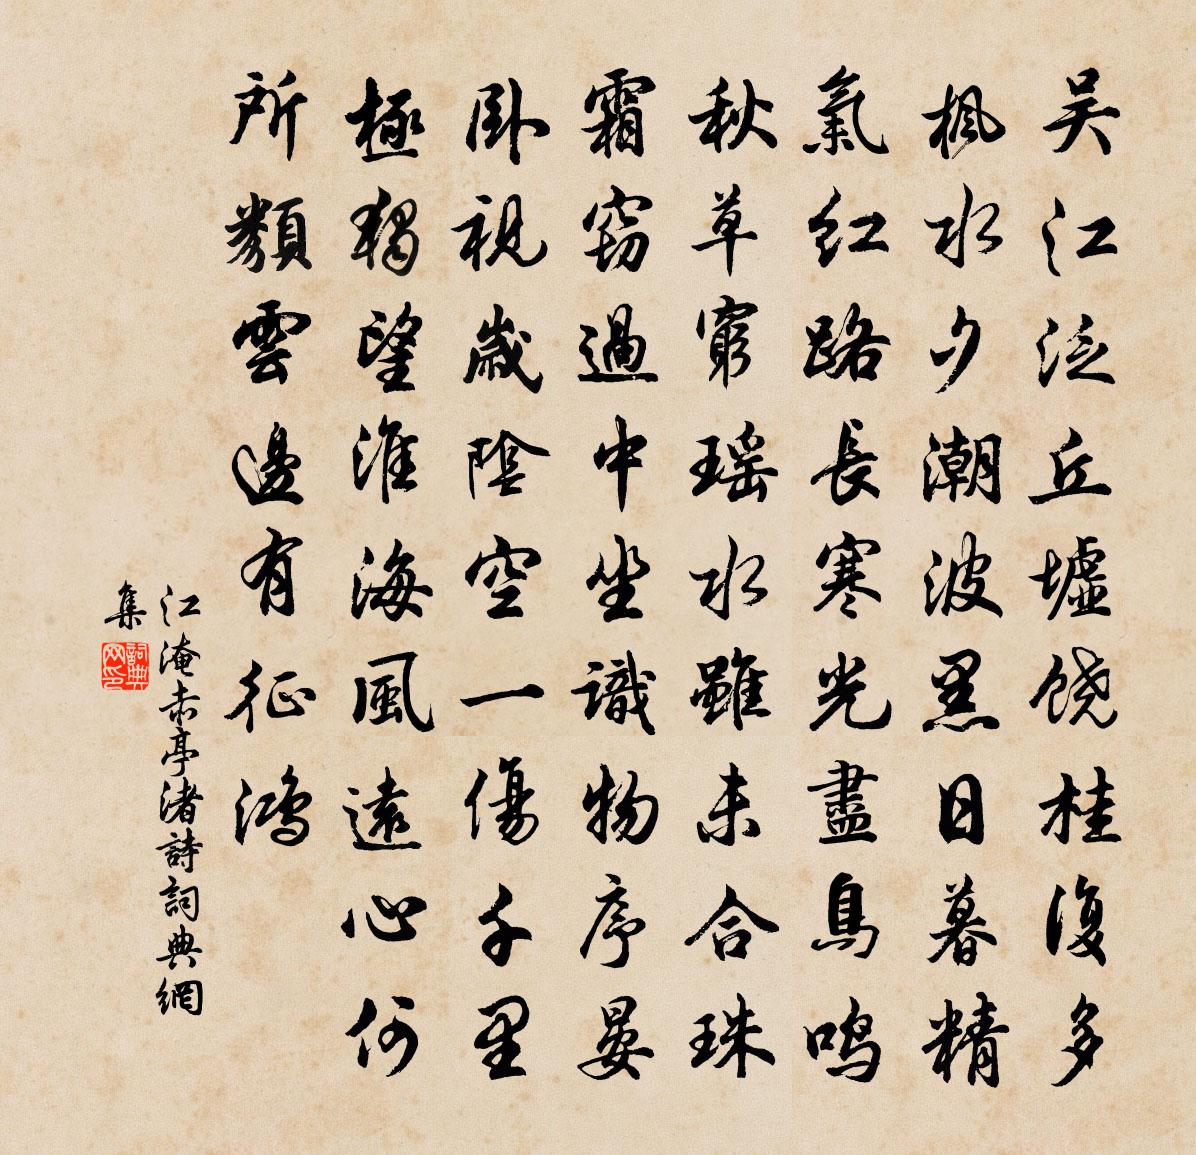 吴江泛丘墟饶桂復多
楓水夕潮波黑日暮精
氣红路長寒光盡鳥鸣
秋草窮瑶水雖未合珠
霜竊過中坐識物序晏
卧視歲陰空一傷千里
極獨望淮海風遠心何
所類雲邊有征鸿
江淹赤亭渚詩詞典網
集
詞典
网印